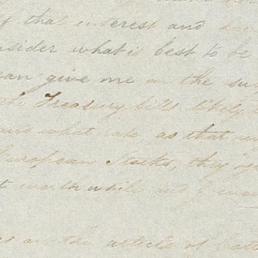 of that interest and
consider what is best to be
can give me on the
the Treasury bills likely
and what rate as that
European Stocks, they
worth while and I
on the articles of